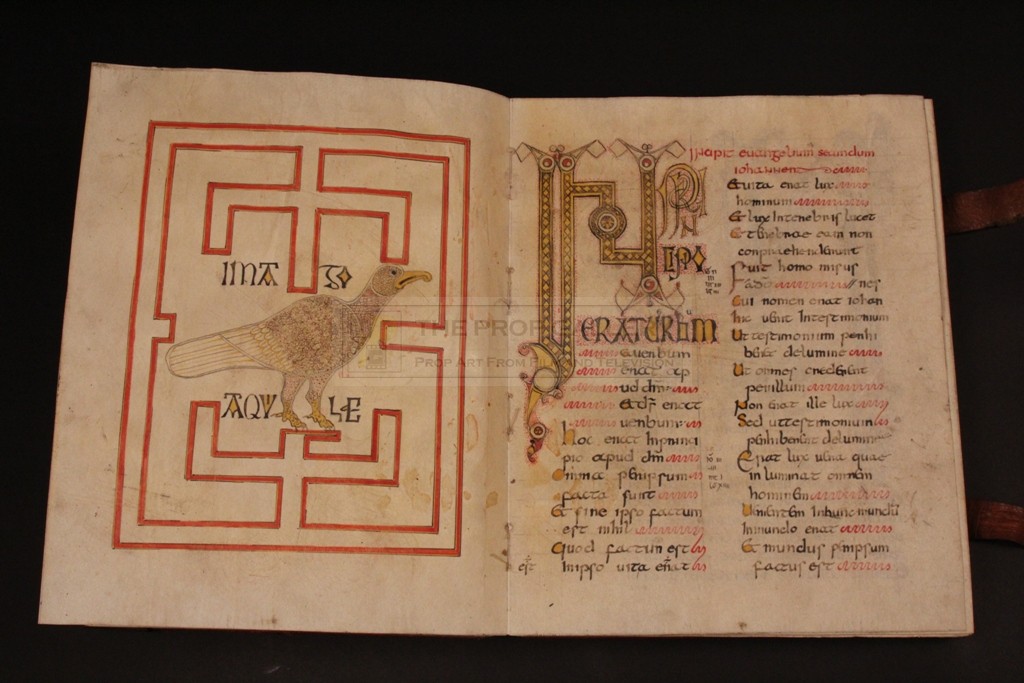 IMA GO
AQV LE
IN PRIN
CIPIO
ERAT UERBUM
et uerbum
erat ap
ud dm̄
Et ds̄ erat
uerbum
hoc erat In princi
pio apud dm̄
Omnia per ipsum
facta sunt
Et sine ipso factum
est nihil
Quod factum est
In ipso uita erat
Incipit euangelium secundum
iohannem
Et uita erat lux
hominum
Et lux In tenebris lucet
Et tenebrae eam non
conpraehenderunt
Fuit homo misus
nes
Cui nomen erat iohan
hic uenit In testimonium
Ut testimonium perhi
beret de lumine
Ut omnes crederent
per illum
Non erat ille lux
Sed ut testimonium
perhiberet de lumine
Erat lux uera quae
inluminat omnem
hominem
Uenientem In hunc mundū
In mundo erat
Et mundus per ipsum
factus est
THE PROP
PROP ART FROM FILM AND TELEVISION